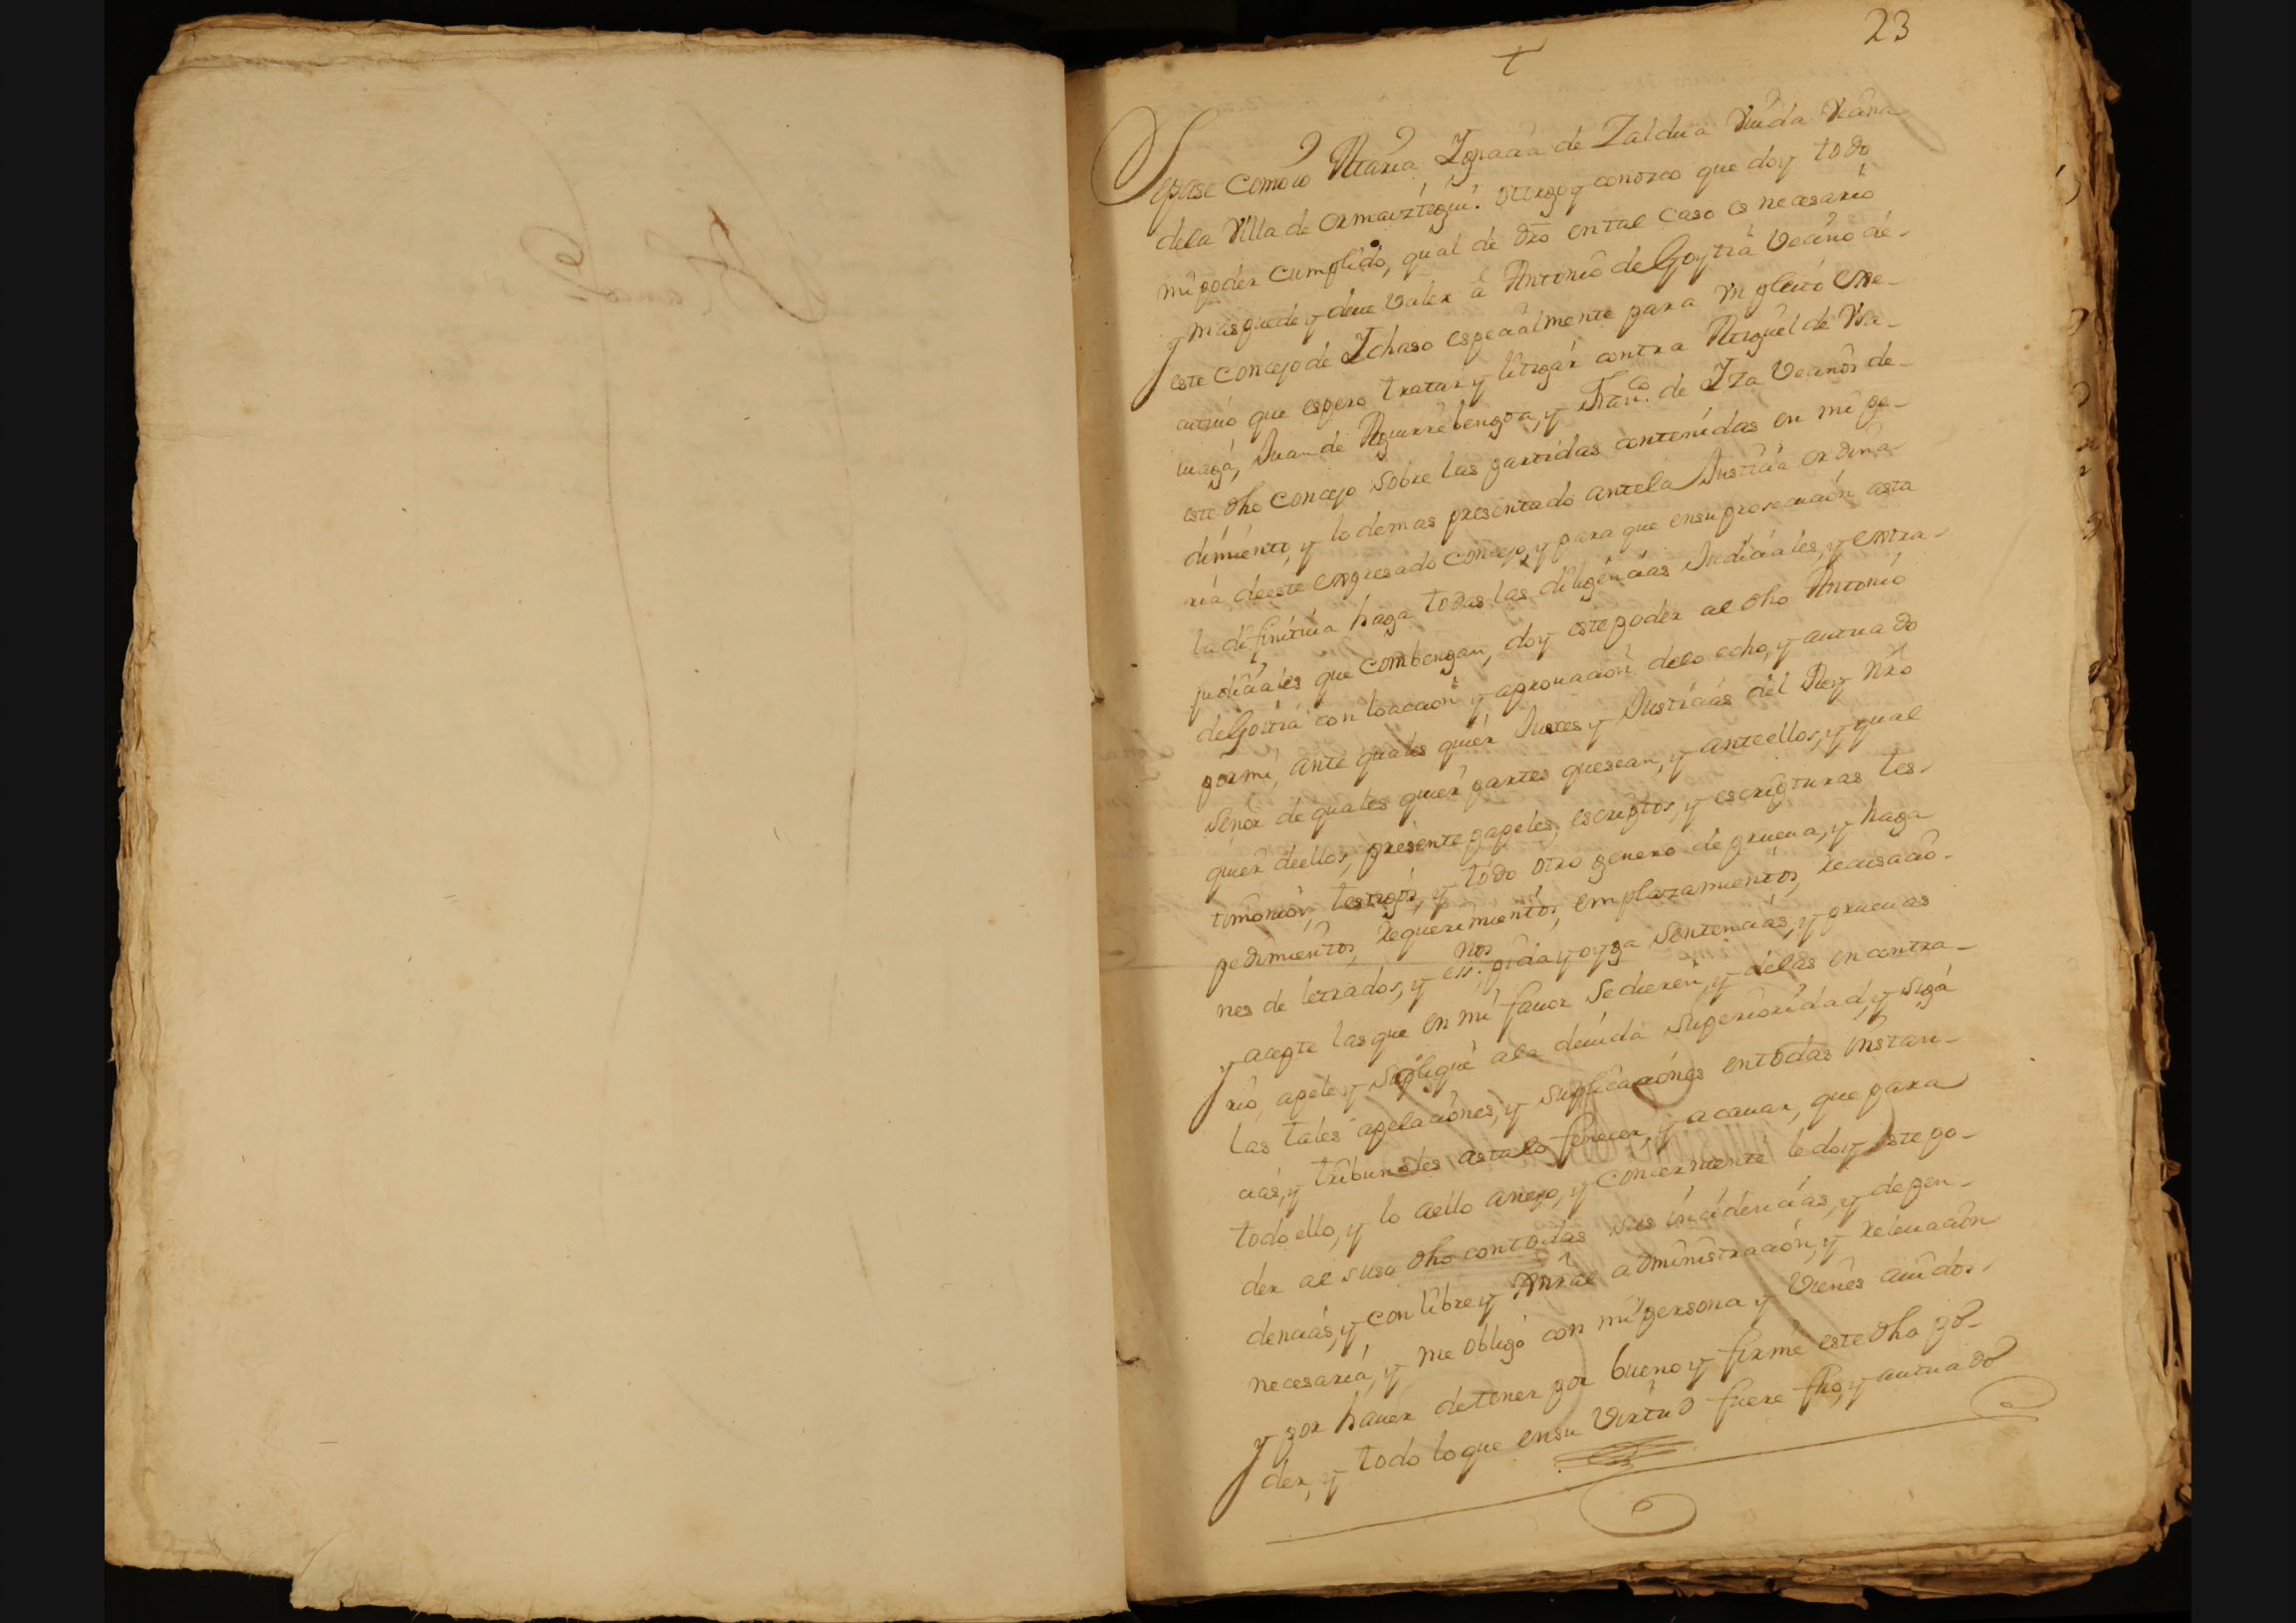 23
Sepase como io Maria Ygnacia de Zaldua Viuda Vecina
dela Villa de ormaiztegui. otorgo y conozco que doy todo
mi poder cumplido, qual de dro en tal caso es necesario
y mas puede y deue valer â Antonio de Goytia Vecino de
este concejo de Ichaso especialmente para vn pleito exe-
cutiuo que espero tratar y litigar contra Miguel de
Juan de Aguirrebengoa, y Franco. de Iza Vecinos de-
este dho concejo sobre las partidas contenidas en mi pe-
dimiento, y lo demas presentado antela Justicia ordina-
ria deeste expresado concejo, y para que ensu prosecucion asta
la difinitiua haga todas las diligencias Judiciales, y extra-
judiciales que combengan, doy este poder al dho Antonio
de Goitia con loacion y aprouacion delo echo, y autuado
por mi, ante quales quier Jueces y Justicias del Rey Nro
Señor de quales quier partes quesean, y anteellos, y qual
quier deellos, presente papeles, escriptos, y escripturas tes-
timonios, testigos, y todo otro genero de prueua, y haga
pedimientos, requerimientos, emplazamientos, recusacio-
nes de letrados, y essnos. pida y oyga sentencias, y prueuas
y acepte las que en mi fauor se dieren, y delas en contra-
rio, apele y suplique ala deuida superioridad, y siga
las tales apelaciones, y suplicaciones entodas instan-
cias, y tribunales astalo fenecer, y acauar, que para
todo ello, y lo aello anejo, y concerniente le doy este po-
der al suso dho contodas sus incidencias, y depen-
dencias, y con libre y Gnral administracion, y releuacion
necesaria, y me obligo con mi persona y vienes auidos,
y por hauer detener por bueno y firme este dho po-
der, y todo lo que ensu virtud fuere fho, y autuado